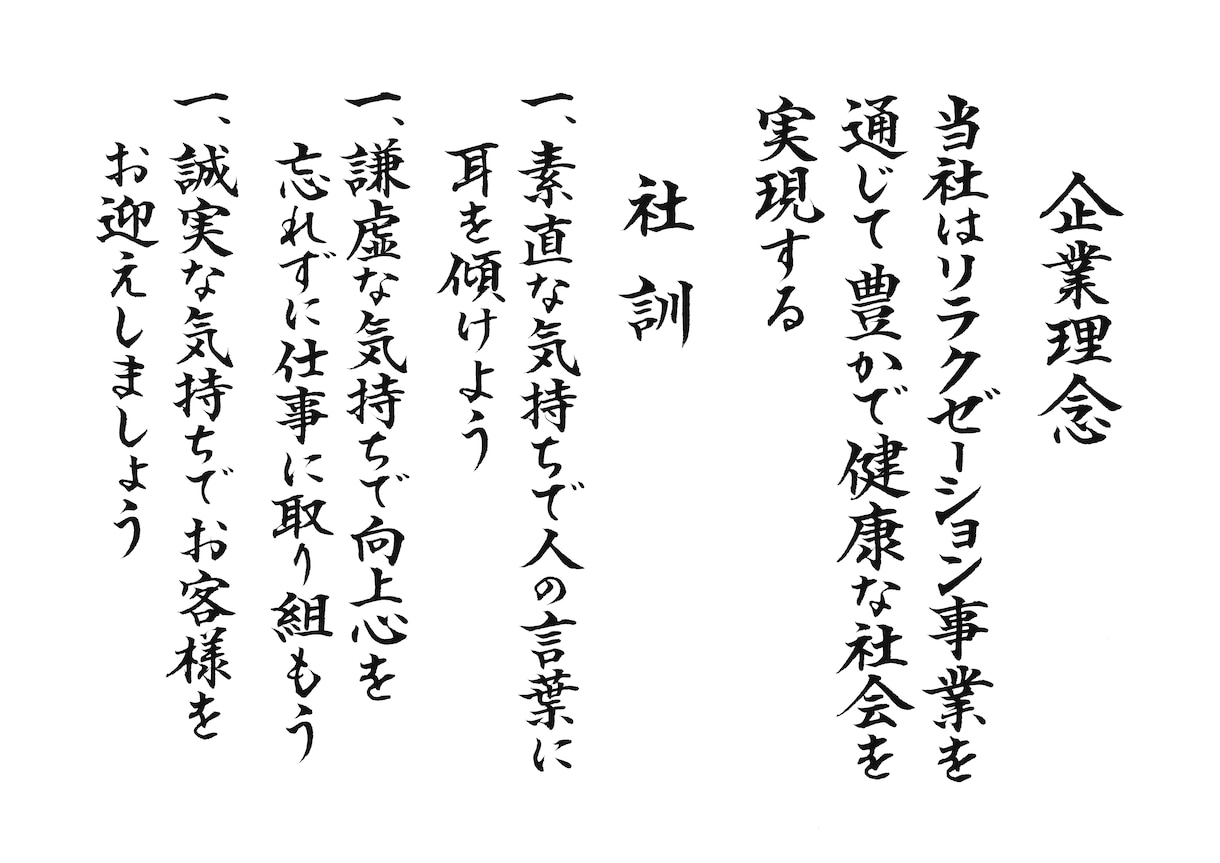 企業理念
当社はリラクゼーション事業を
通じて豊かで健康な社会を
実現する
社訓
一、素直な気持ちで人の言葉に
耳を傾けよう
一、謙虚な気持ちで向上心を
忘れずに仕事に取り組もう
一、誠実な気持ちでお客様を
お迎えしましょう